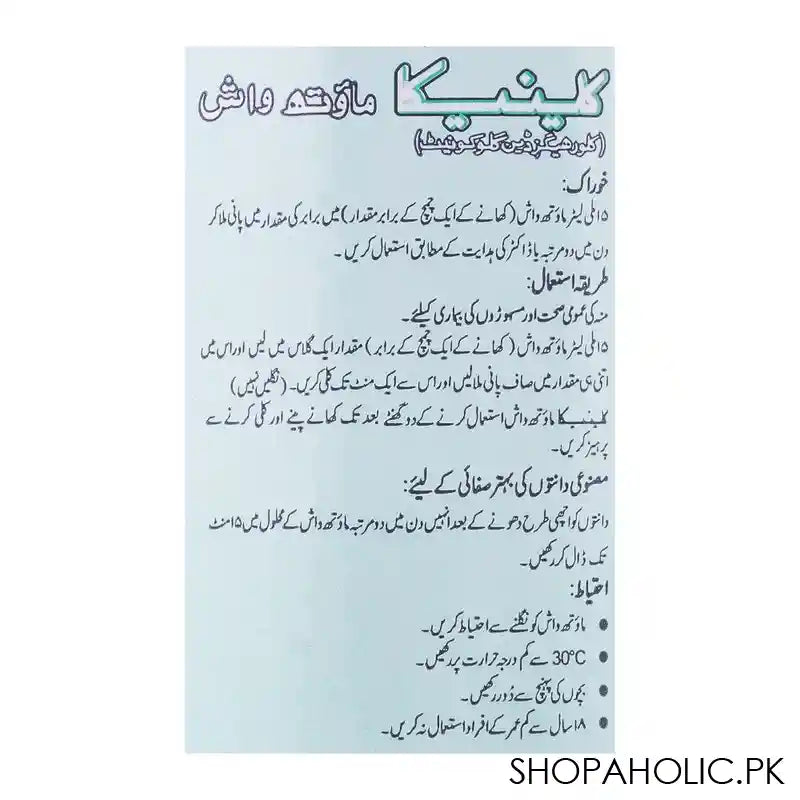 کلینیکا ماؤتھ واش
(کلورھیگزڈین گلوکونیٹ)
خوراک:
۱۵ ملی لیٹر ماؤتھ واش (کھانے کے ایک چمچ کے برابر مقدار) میں برابر کی مقدار میں پانی ملا کر
دن میں دو مرتبہ یا ڈاکٹر کی ہدایت کے مطابق استعمال کریں۔
طریقہ استعمال:
منہ کی عمومی صحت اور مسوڑوں کی بیماری کیلئے۔
۱۵ ملی لیٹر ماؤتھ واش (کھانے کے ایک چمچ کے برابر) مقدار ایک گلاس میں لیں اور اس میں
اتنی ہی مقدار میں صاف پانی ملا لیں اور اس سے ایک منٹ تک کلی کریں۔ (نگلیں نہیں)
کلینیکا ماؤتھ واش استعمال کرنے کے دو گھنٹے بعد تک کھانے پینے اور کلی کرنے سے
پرہیز کریں۔
مصنوعی دانتوں کی بہتر صفائی کے لیئے:
دانتوں کو اچھی طرح دھونے کے بعد انہیں دن میں دو مرتبہ ماؤتھ واش کے محلول میں ۱۵ منٹ
تک ڈال کر رکھیں۔
احتیاط:
● ماؤتھ واش کو نگلنے سے احتیاط کریں۔
● 30°C سے کم درجہ حرارت پر رکھیں۔
● بچوں کی پہنچ سے دُور رکھیں۔
● ۱۸ سال سے کم عمر کے افراد استعمال نہ کریں۔
SHOPAHOLIC.PK